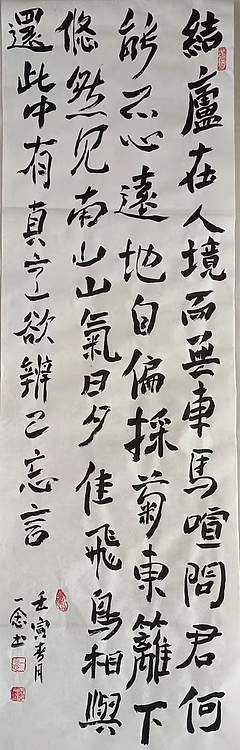 結廬在人境而無車馬喧問君何
能尔心遠地自偏採菊東籬下
悠然見南山山氣日夕佳飛鳥相與
還此中有真意欲辨已忘言
壬寅春月
一念书